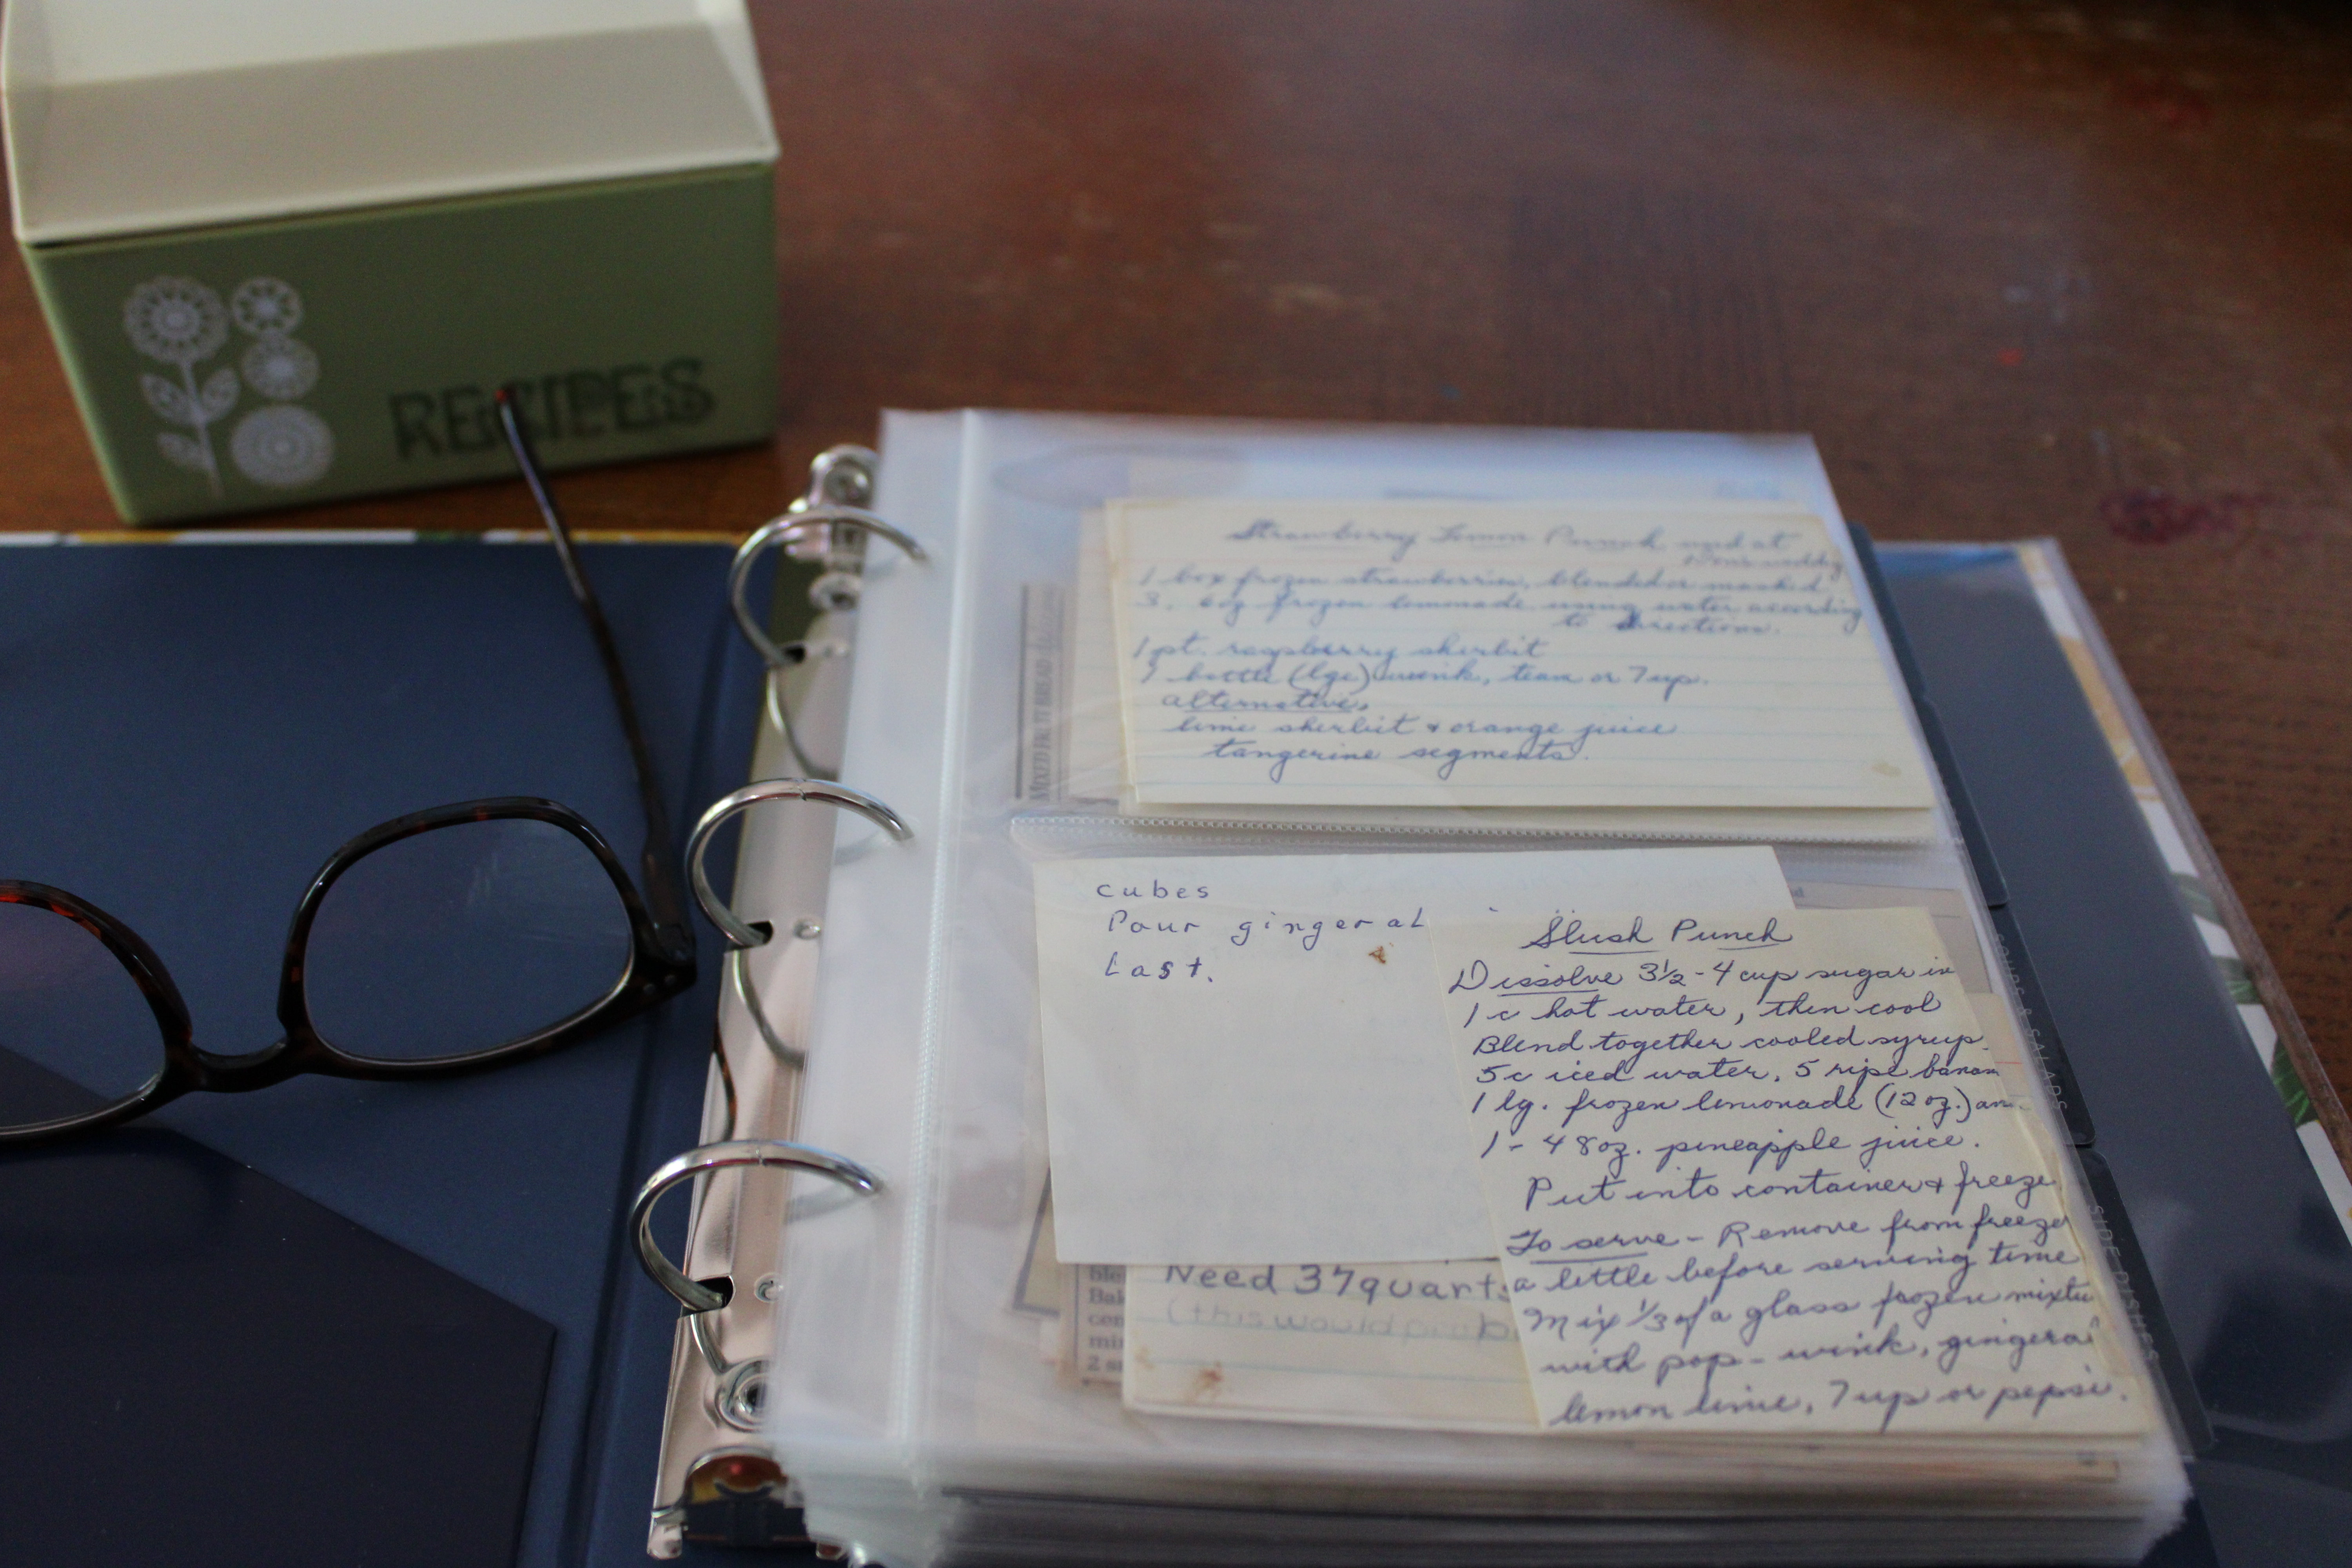 RECIPES
Strawberry Lemon Punch used at
1 box frozen strawberries, blended or mashed
3, 6 oz frozen lemonade using water according
to directions.
1 pt. raspberry sherbit
1 bottle (lge) wink, team or 7up.
alternative,
lime sherbit & orange juice
tangerine segments.
MIXED FRUIT BREAD
cubes
Pour ginger al
Last.
Slush Punch
Dissolve 3½ - 4 cup sugar in
1 c hot water, then cool
Blend together cooled syrup
5c iced water, 5 ripe banan
1 lg. frozen lemonade (12 oz.) an
1 - 48 oz. pineapple juice.
Put into container & freeze
To serve - Remove from freeze
a little before serving time
Mix 1/3 of a glass frozen mixtu
with pop - wink, gingera
lemon lime, 7up or pepsi.
Need 37 quarts
(this would prob
ble
Bak
con
min
2 s
SOUPS & SALADS
SIDE DISHES